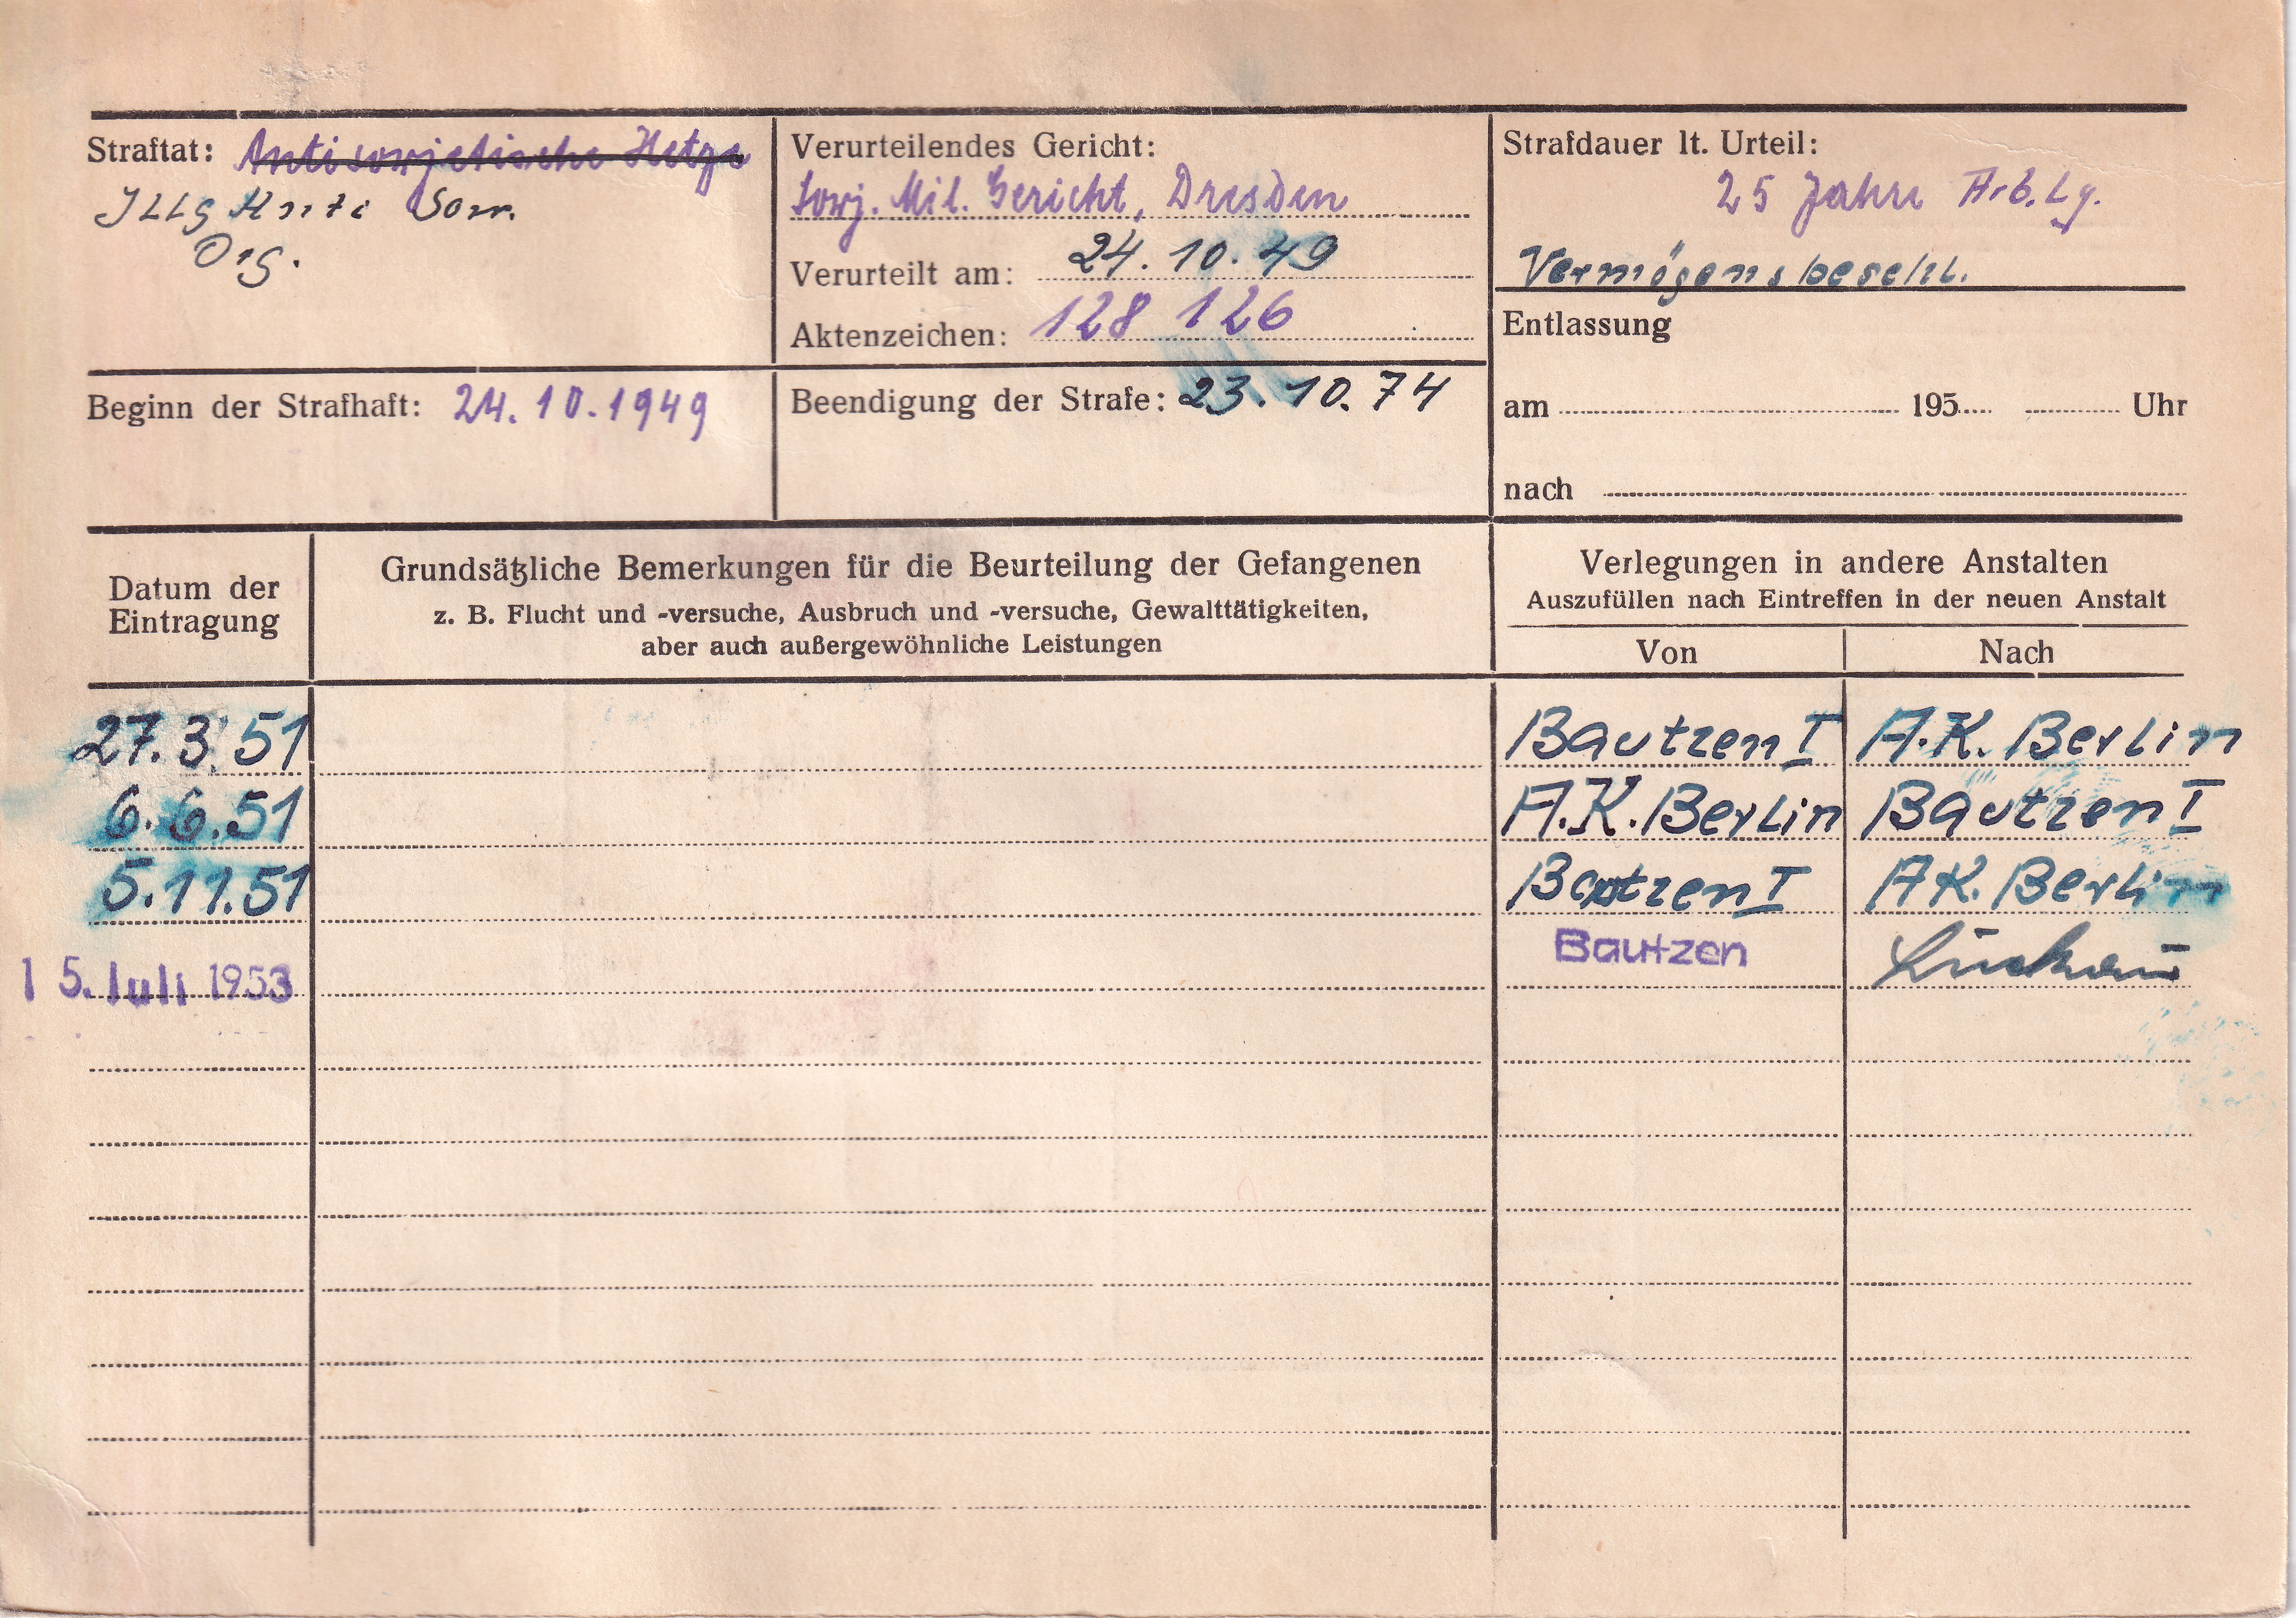 Straftat: Antisowjetische Hetze
Illg Anti Sow.
Org.
Verurteilendes Gericht:
Sowj. Mil. Gericht, Dresden
Verurteilt am: 24. 10. 49
Aktenzeichen: 128 126
Strafdauer lt. Urteil:
25 Jahre Arb. Lg.
Vermögensbeschl.
Beginn der Strafhaft: 24. 10. 1949
Beendigung der Strafe: 23. 10. 74
Entlassung
am 195 Uhr
nach
Datum der
Eintragung
Grundsätzliche Bemerkungen für die Beurteilung der Gefangenen
z. B. Flucht und -versuche, Ausbruch und -versuche, Gewalttätigkeiten,
aber auch außergewöhnliche Leistungen
Verlegungen in andere Anstalten
Auszufüllen nach Eintreffen in der neuen Anstalt
Von Nach
27. 3. 51 Bautzen I A.K. Berlin
6. 6. 51 A.K. Berlin Bautzen I
5. 11. 51 Bautzen I AK. Berlin
15. Juli 1953 Bautzen Luckau